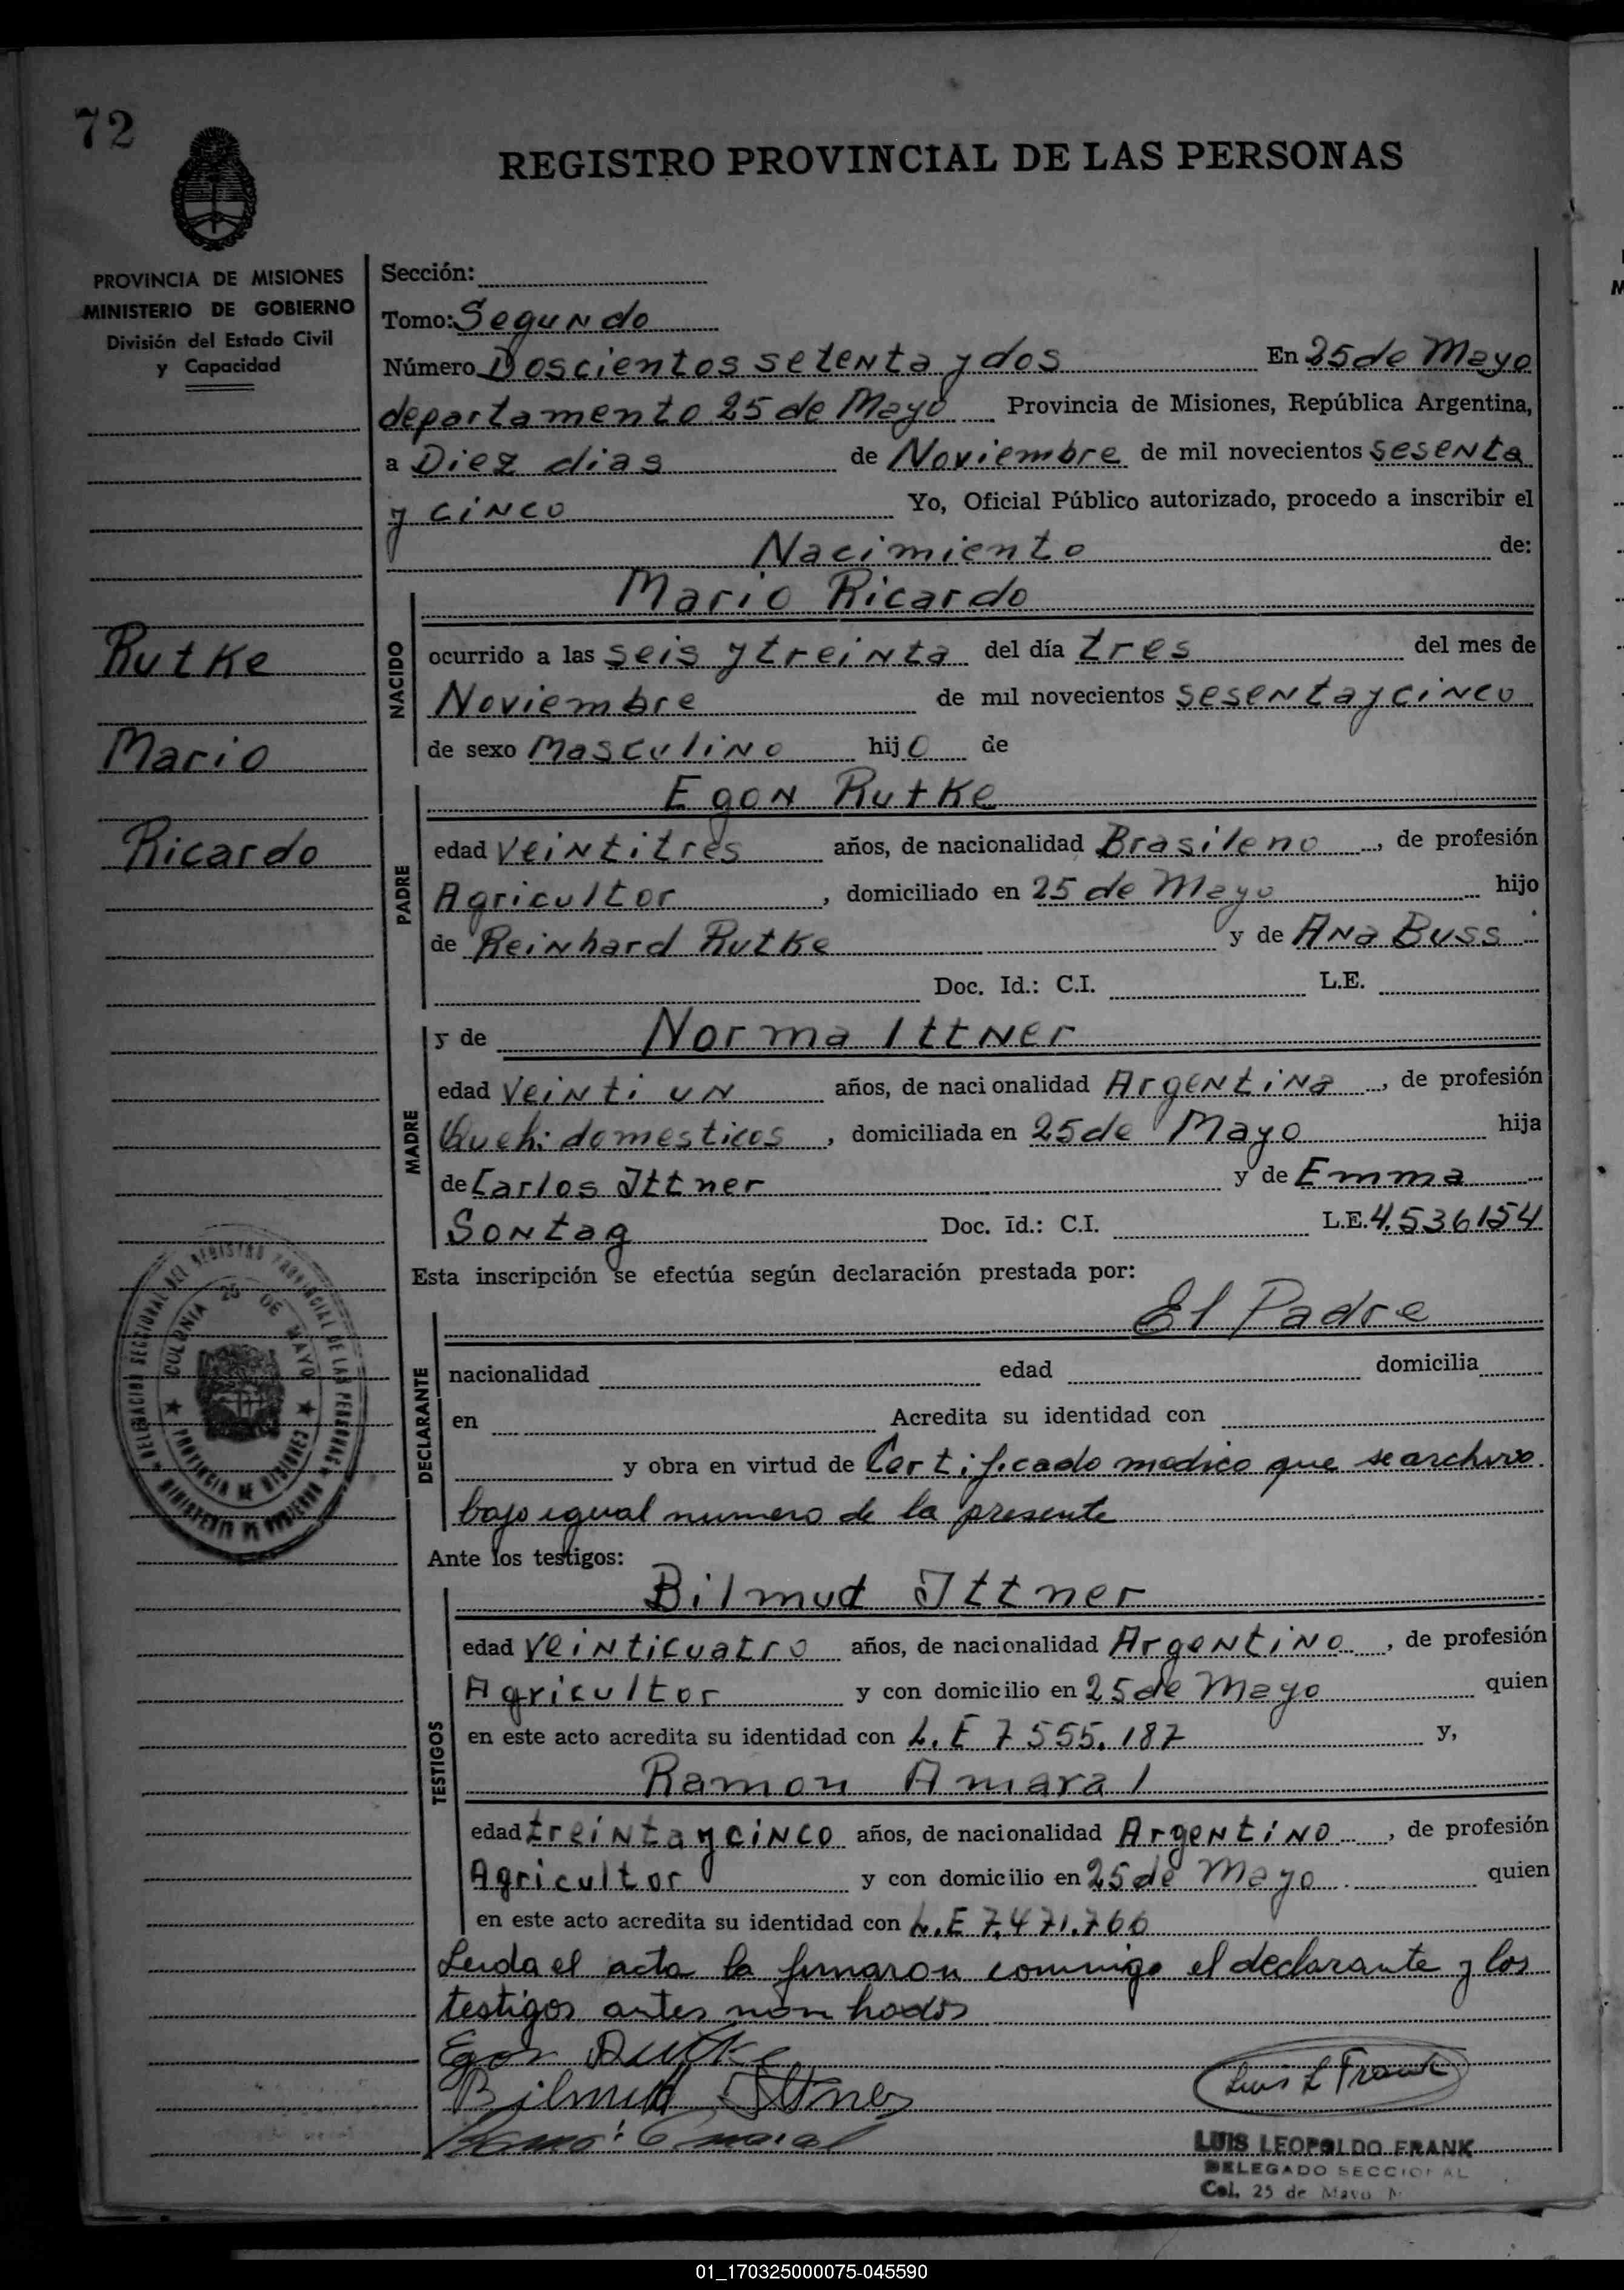 72
REGISTRO PROVINCIAL DE LAS PERSONAS
PROVINCIA DE MISIONES
MINISTERIO DE GOBIERNO
División del Estado Civil
y Capacidad
Rutke
Mario
Ricardo
DELEGACION SECCIONAL DEL REGISTRO PROVINCIAL DE LAS PERSONAS
COLONIA 25 DE MAYO
PROVINCIA DE MISIONES
MINISTERIO DE GOBIERNO
Sección:
Tomo: Segundo
Número Doscientos setenta y dos En 25 de Mayo
departamento 25 de Mayo Provincia de Misiones, República Argentina,
a Diez dias de Noviembre de mil novecientos sesenta
y cinco Yo, Oficial Público autorizado, procedo a inscribir el
Nacimiento de:
NACIDO
Mario Ricardo
ocurrido a las seis y treinta del día tres del mes de
Noviembre de mil novecientos sesenta y cinco
de sexo Masculino hijo de
PADRE
Egon Rutke
edad veintitres años, de nacionalidad Brasileno, de profesión
Agricultor, domiciliado en 25 de Mayo hijo
de Reinhard Rutke y de Ana Buss
Doc. Id.: C.I. L.E.
MADRE
y de Norma Ittner
edad veinti un años, de nacionalidad Argentina, de profesión
Queh: domesticos, domiciliada en 25 de Mayo hija
de Carlos Ittner y de Emma
Sontag Doc. Id.: C.I. L.E. 4.536154
Esta inscripción se efectúa según declaración prestada por:
DECLARANTE
El Padre
nacionalidad edad domicilia
en Acredita su identidad con
y obra en virtud de Certificado medico que se archiva
bajo igual numero de la presente
Ante los testigos:
TESTIGOS
Bilmud Ittner
edad veinticuatro años, de nacionalidad Argentino, de profesión
Agricultor y con domicilio en 25 de Mayo quien
en este acto acredita su identidad con L.E 7555.187 y,
Ramon Amaral
edad treinta y cinco años, de nacionalidad Argentino, de profesión
Agricultor y con domicilio en 25 de Mayo quien
en este acto acredita su identidad con L.E 7.471.766
Leida el acta la firmaron conmigo el declarante y los
testigos antes nombrados
Egon Rutke
Bilmud Ittner
Ramon Amaral
Luis L Frank
LUIS LEOPOLDO FRANK
DELEGADO SECCIONAL
Col. 25 de Mayo M
01_170325000075-045590